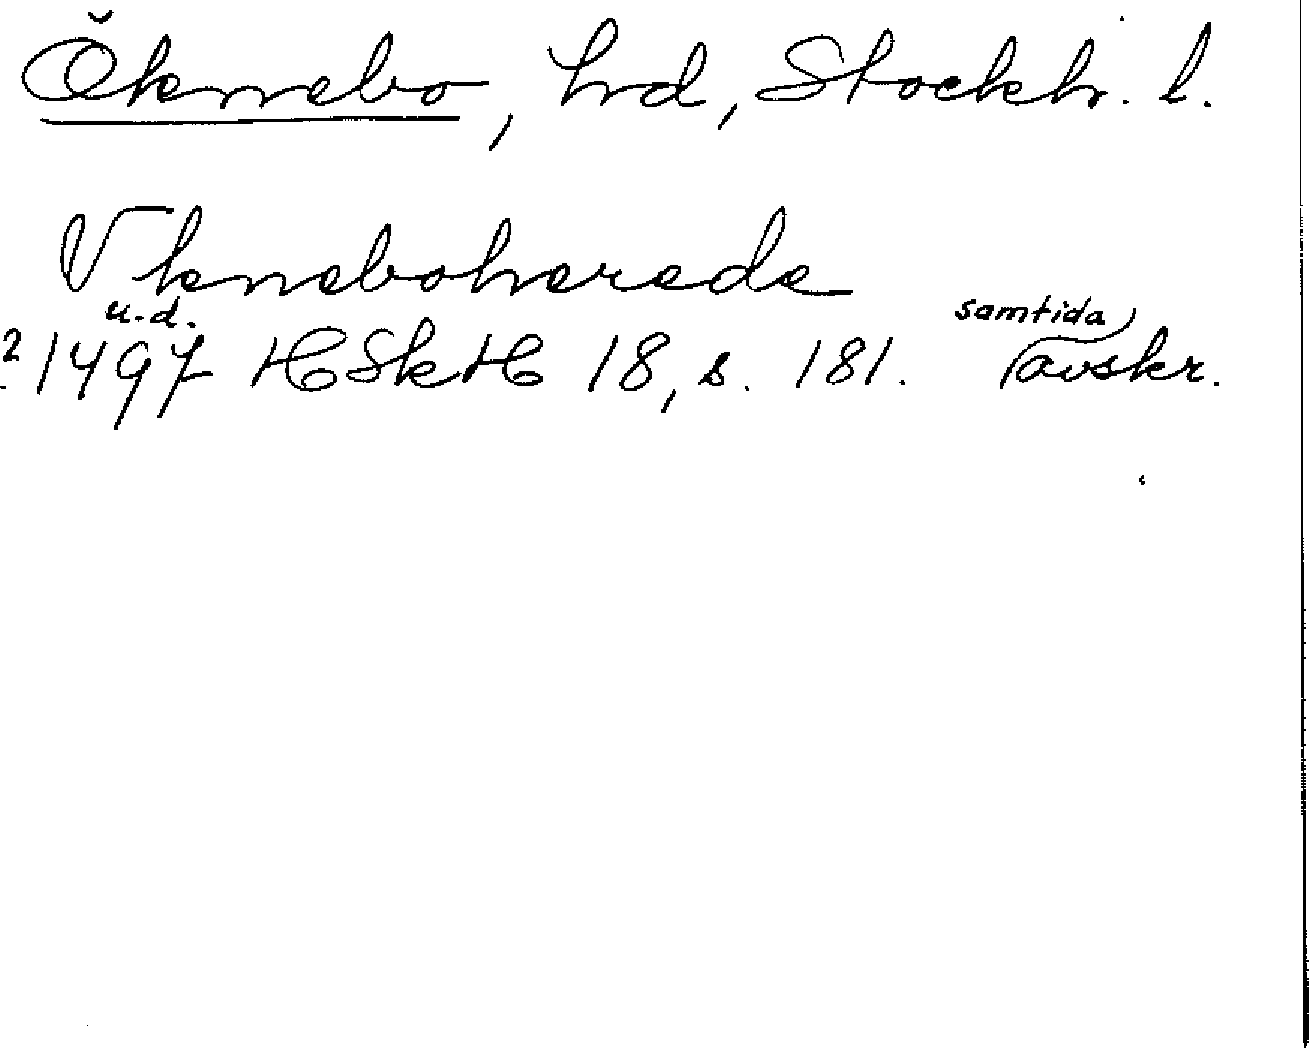 Öknebo, hd, Stockh. l.
Vkneboherade
? 1497 u.d. HSkH 18, s. 181. samtida avskr.